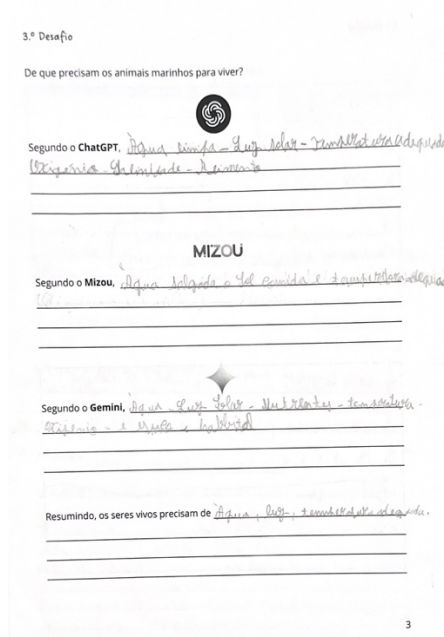 3.º Desafio
De que precisam os animais marinhos para viver?
Segundo o ChatGPT, Água limpa - Luz solar - temperatura adequada
Oxigénio - Salinidade - Alimento
MIZOU
Segundo o Mizou, Água salgada o Sol comida e temperatura adequada
Segundo o Gemini, Água - Luz Solar - Nutrientes - temperatura -
oxigénio - e habitat
Resumindo, os seres vivos precisam de Água, luz, temperatura adequada.
3